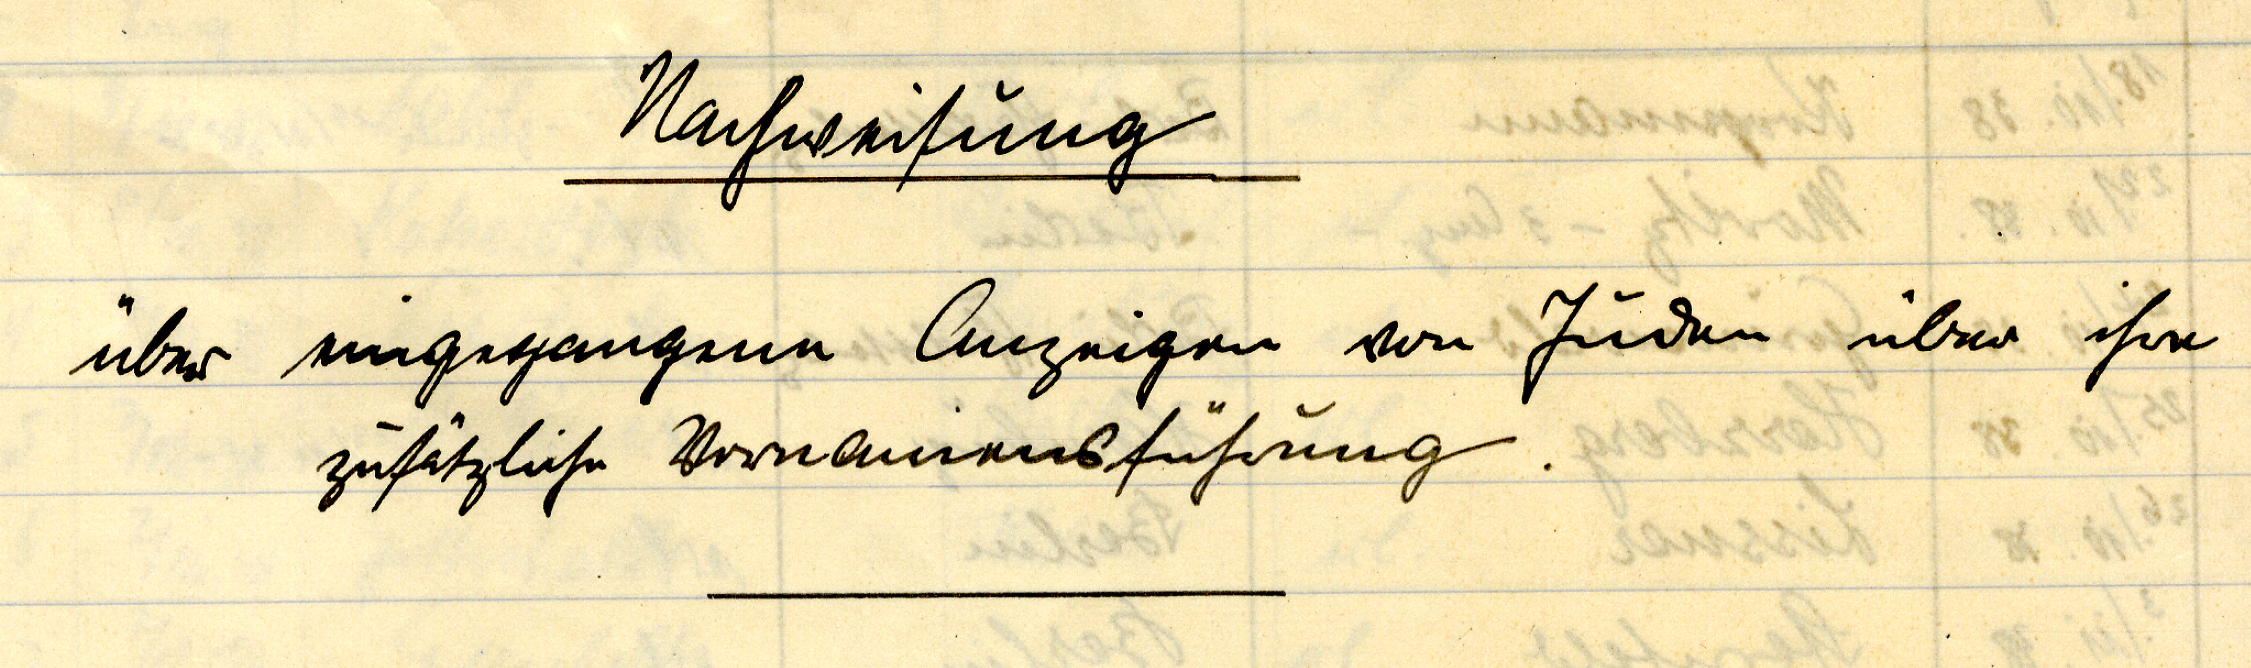 Nachweisung
über eingegangene Anzeigen von Juden über ihre
zusätzliche Vornamensführung.